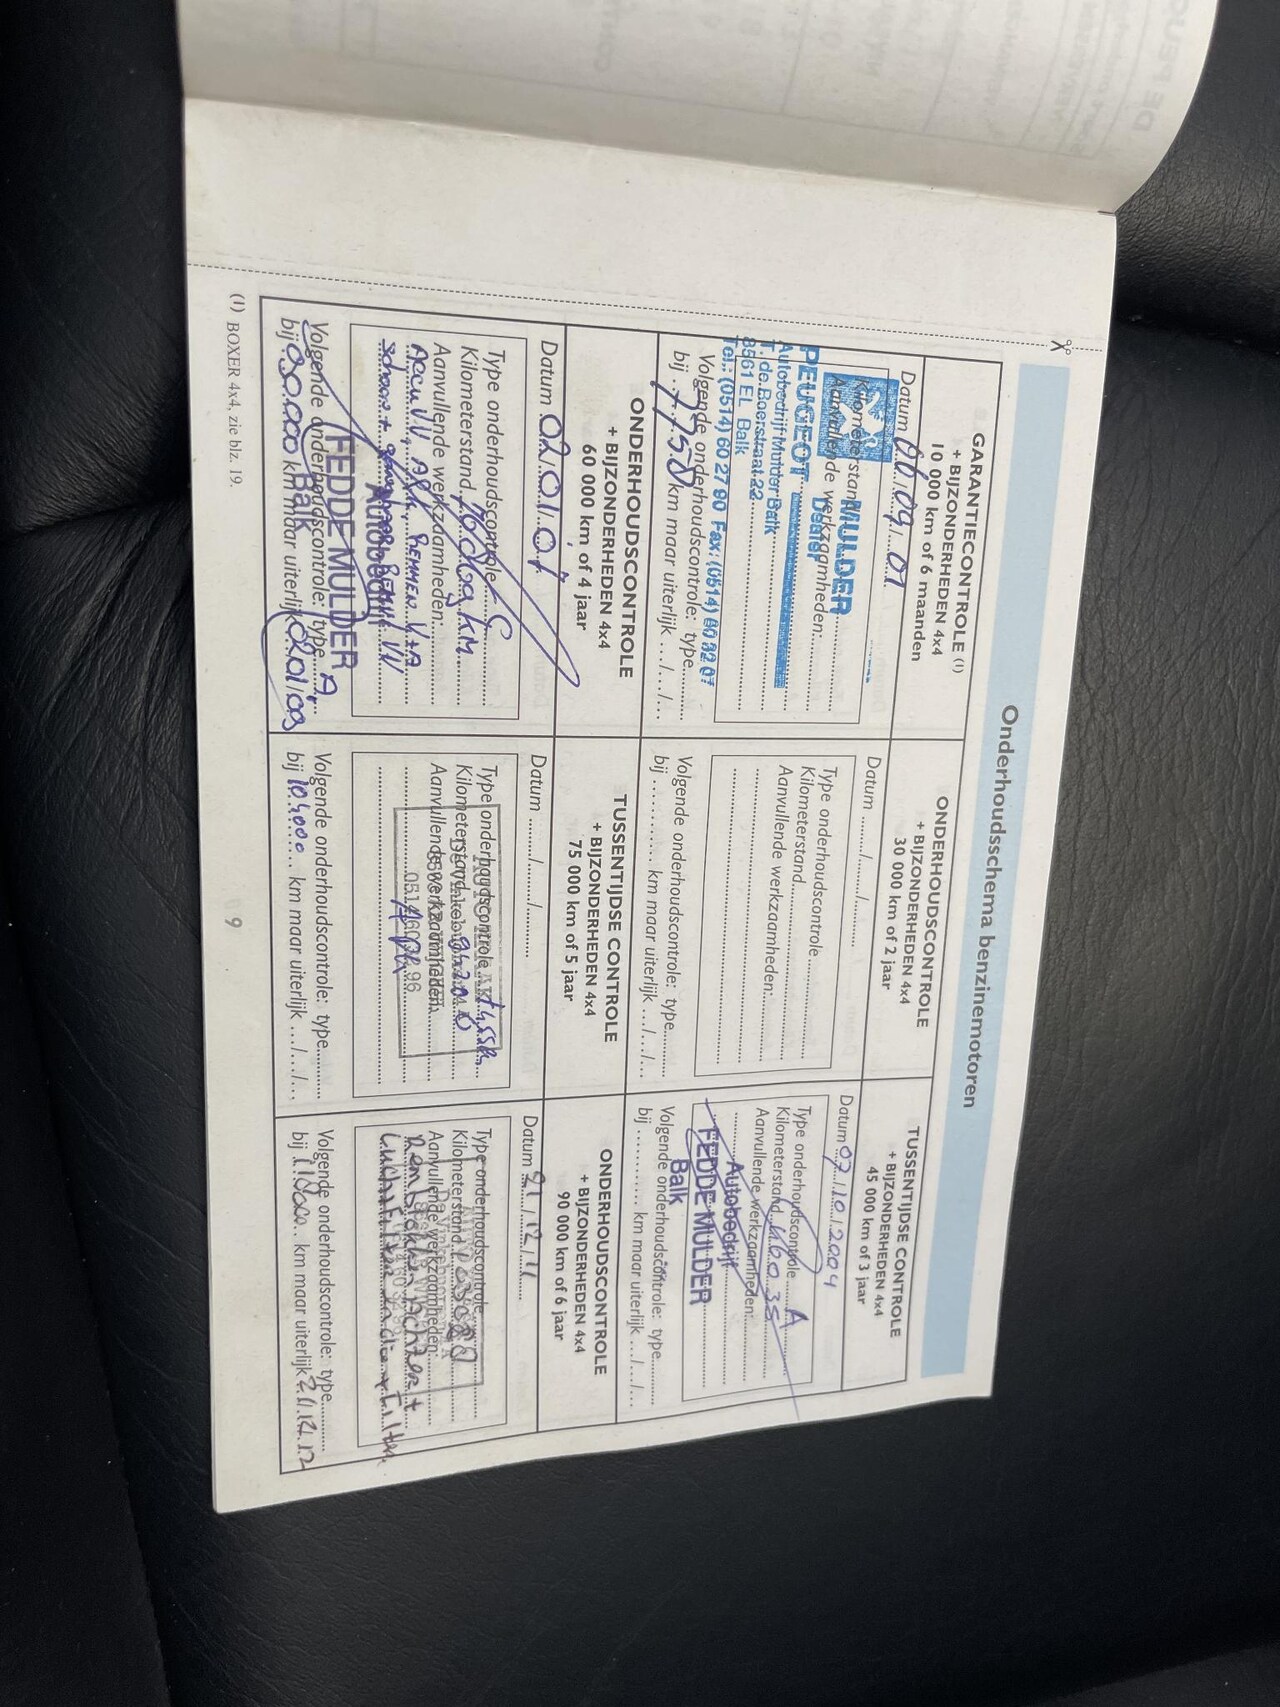 Onderhoudsschema benzinemotoren
GARANTIECONTROLE (1)
+ BIJZONDERHEDEN 4x4
10 000 km of 6 maanden
Datum 06 09 01
MULDER
Kilometerstand
Aanvullende werkzaamheden:
Dealer
PEUGEOT
Autobedrijf Mulder Balk
T. de Boerstraat 22
8561 EL Balk
Tel.: (0514) 60 27 90 Fax: (0514) 60 32 07
Volgende onderhoudscontrole: type
bij 7758 km maar uiterlijk .../.../...
ONDERHOUDSCONTROLE
+ BIJZONDERHEDEN 4x4
30 000 km of 2 jaar
Datum ......./......./.......
Type onderhoudscontrole
Kilometerstand
Aanvullende werkzaamheden:
Volgende onderhoudscontrole: type
bij .......... km maar uiterlijk .../.../...
TUSSENTIJDSE CONTROLE
+ BIJZONDERHEDEN 4x4
45 000 km of 3 jaar
Datum 07/10/2004
Type onderhoudscontrole A
Kilometerstand 66035
Aanvullende werkzaamheden:
Autobedrijf
FEDDE MULDER
Balk
Volgende onderhoudscontrole: type
bij .......... km maar uiterlijk .../.../...
ONDERHOUDSCONTROLE
+ BIJZONDERHEDEN 4x4
60 000 km of 4 jaar
Datum 02 01 07
Type onderhoudscontrole C
Kilometerstand km
Aanvullende werkzaamheden:
Accu VV Remmen V+A
Autobedrijf
FEDDE MULDER
Balk
Volgende onderhoudscontrole: type A
bij 90.000 km maar uiterlijk 02/01/09
TUSSENTIJDSE CONTROLE
+ BIJZONDERHEDEN 4x4
75 000 km of 5 jaar
Datum ......./......./.......
Type onderhoudscontrole tussen
Kilometerstand 94200
Aanvullende werkzaamheden:
APK
Volgende onderhoudscontrole: type
bij 104000 km maar uiterlijk .../.../...
ONDERHOUDSCONTROLE
+ BIJZONDERHEDEN 4x4
90 000 km of 6 jaar
Datum 21/12/11
Type onderhoudscontrole
Kilometerstand
Aanvullende werkzaamheden:
Remblokken achter +
Luchtfilter
Volgende onderhoudscontrole: type
bij km maar uiterlijk 21.12.12
(1) BOXER 4x4, zie blz. 19.
9